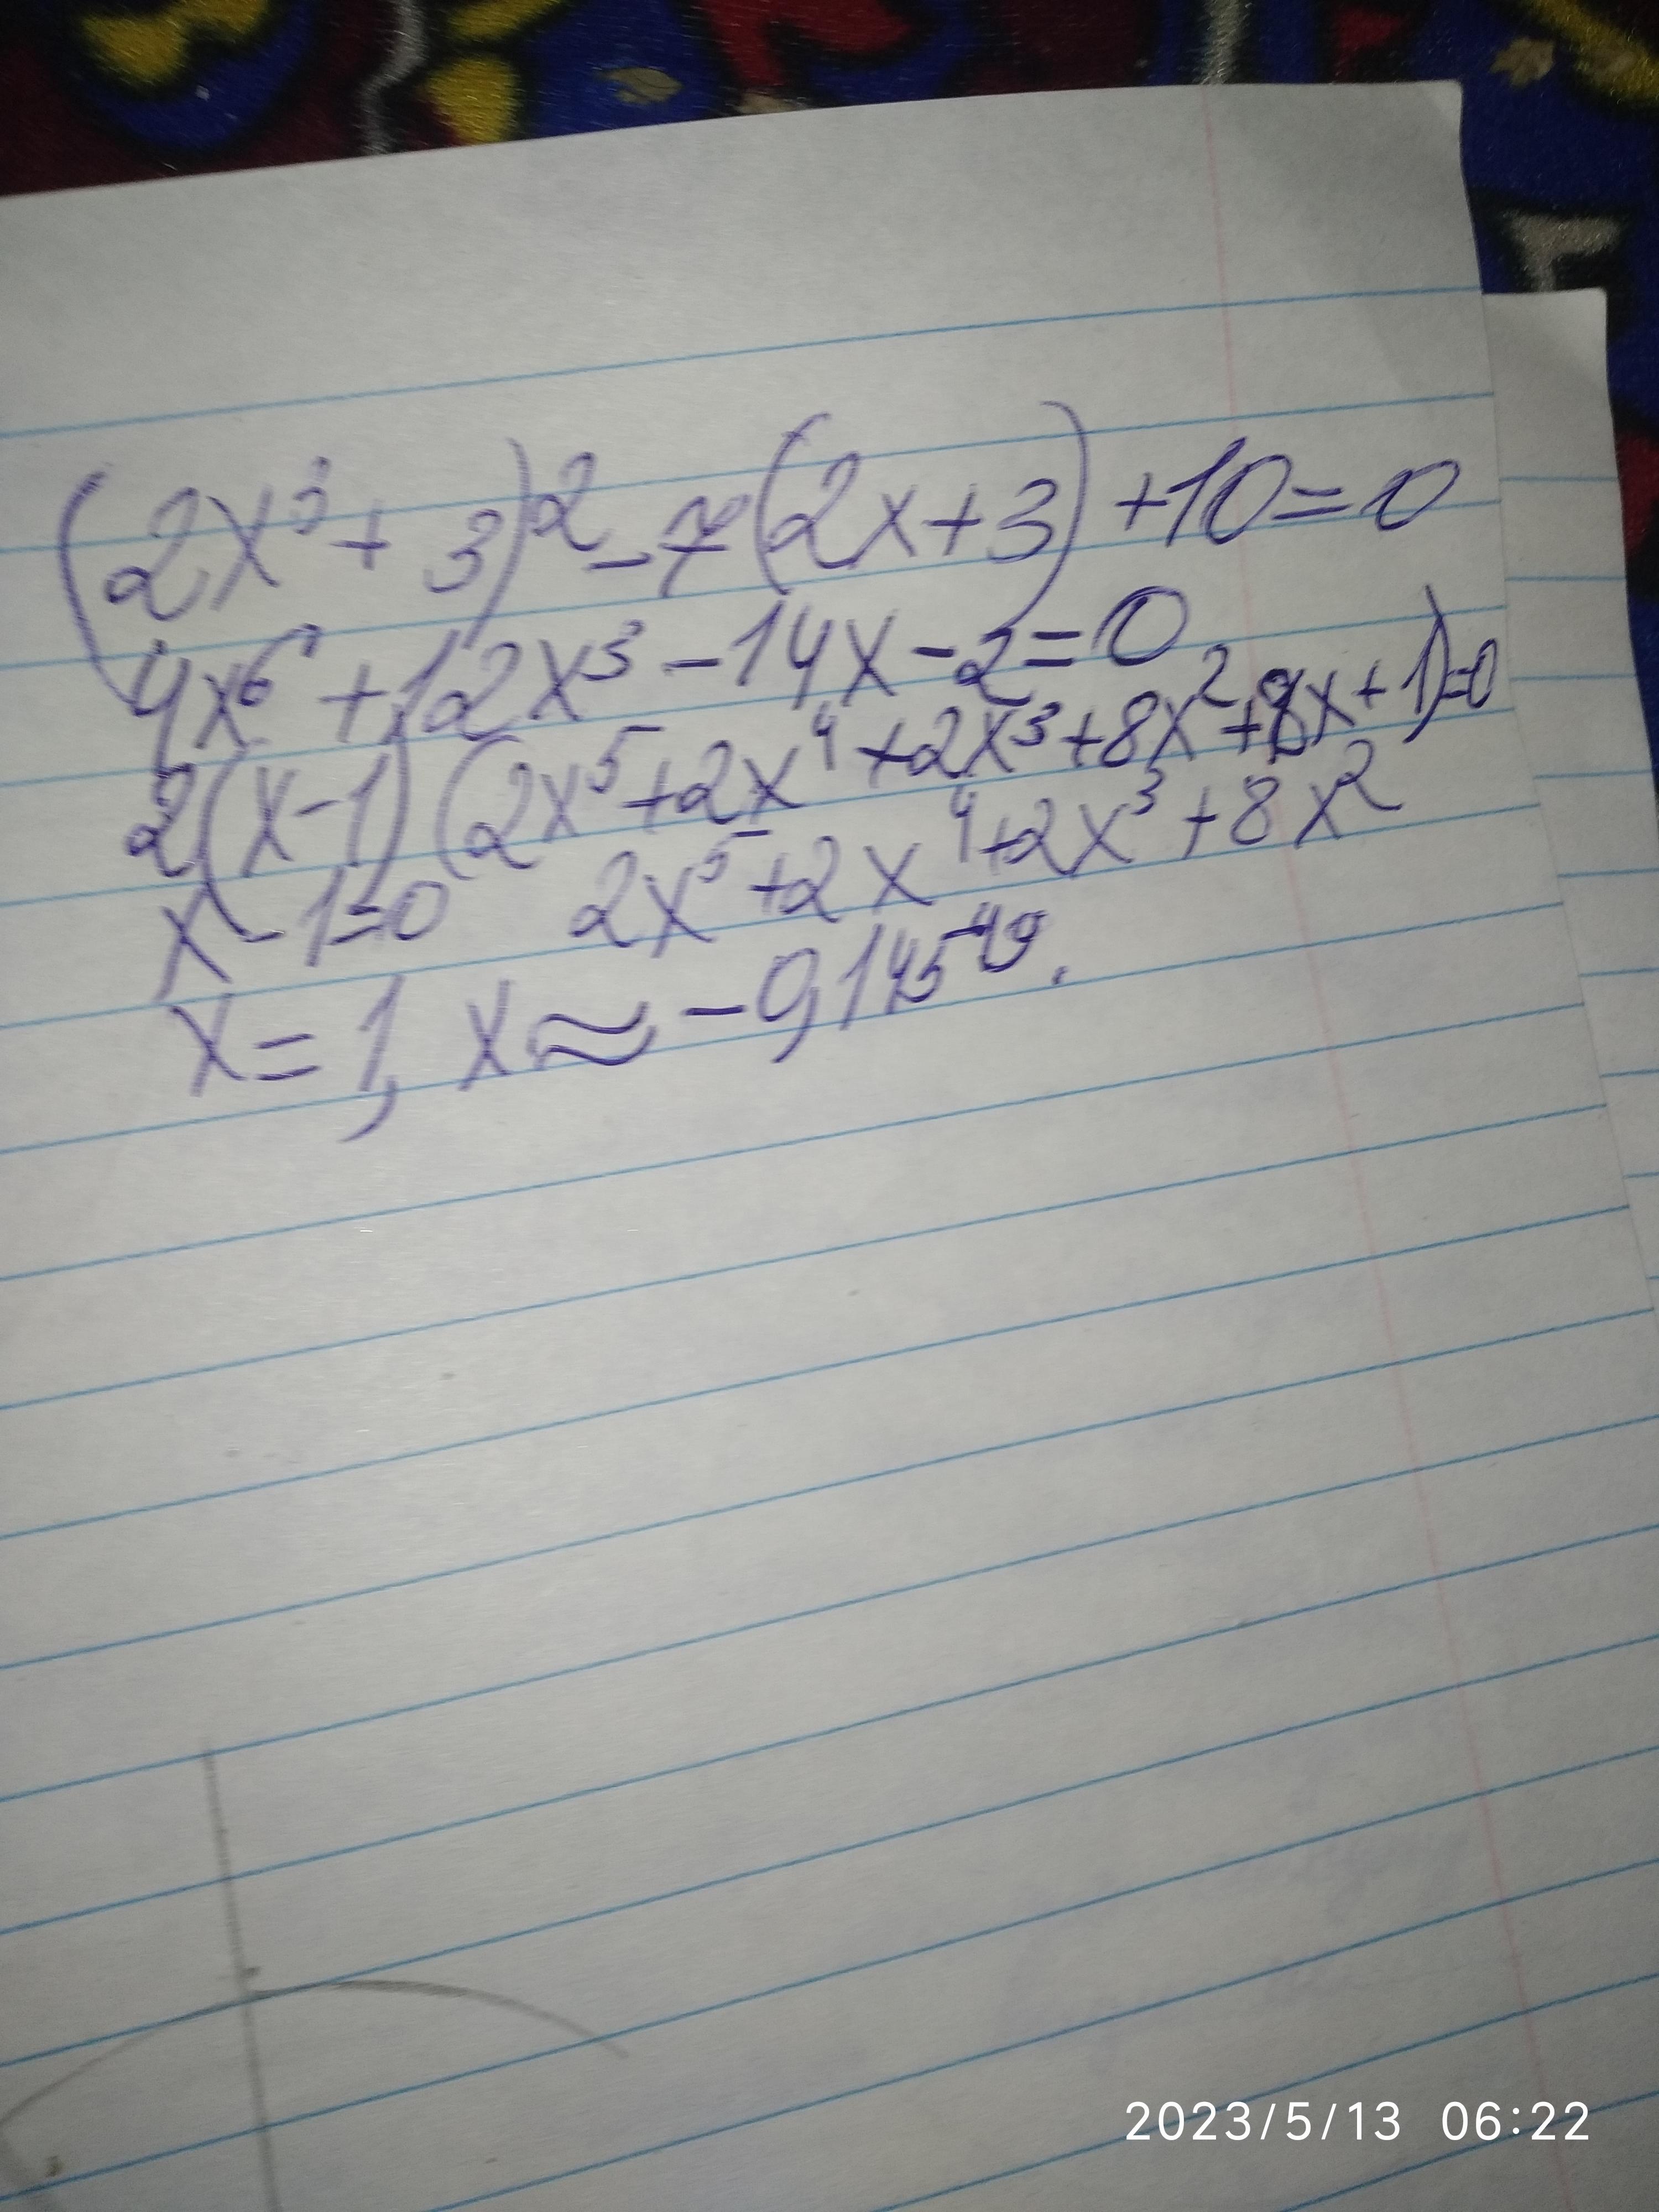 (2x³+3)²-7(2x+3)+10=0
4x⁶+12x³-14x-2=0
2(x-1)(2x⁵+2x⁴+2x³+8x²+8x+1)=0
x-1=0 2x⁵+2x⁴+2x³+8x²
x=1, x≈-0,145
2023/5/13 06:22